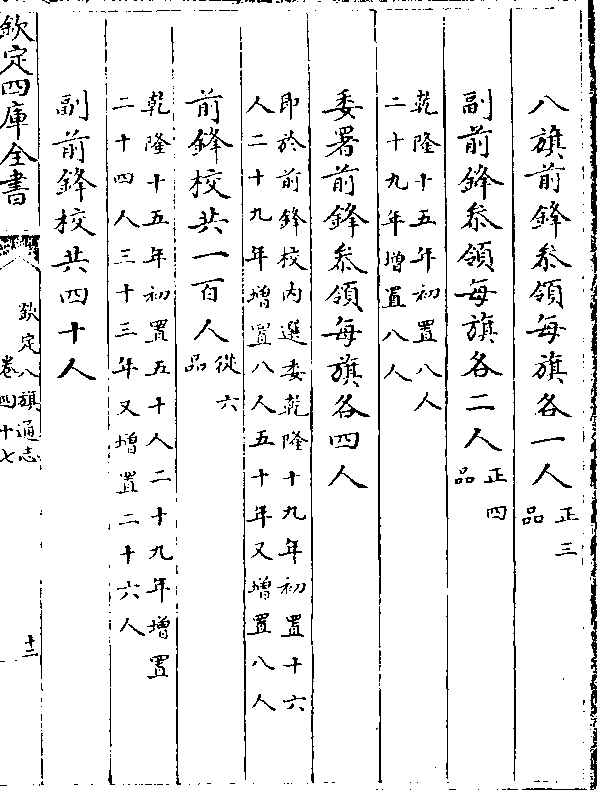 八旗前鋒叅領每旗各一人正三
品
副前鋒叅領每旗各二人正四
品
乾隆十五年初置八人
二十九年增置八人
委署前鋒叅領每旗各四人
即於前鋒校内選委乾隆十九年初置十六
人二十九年增置八人五十年又增置八人
前鋒校共一百人從六
品
乾隆十五年初置五十人二十九年增置
二十四人三十三年又增置二十六人
副前鋒校共四十人
欽定四庫全書
欽定八旗通志
卷四十七
十二